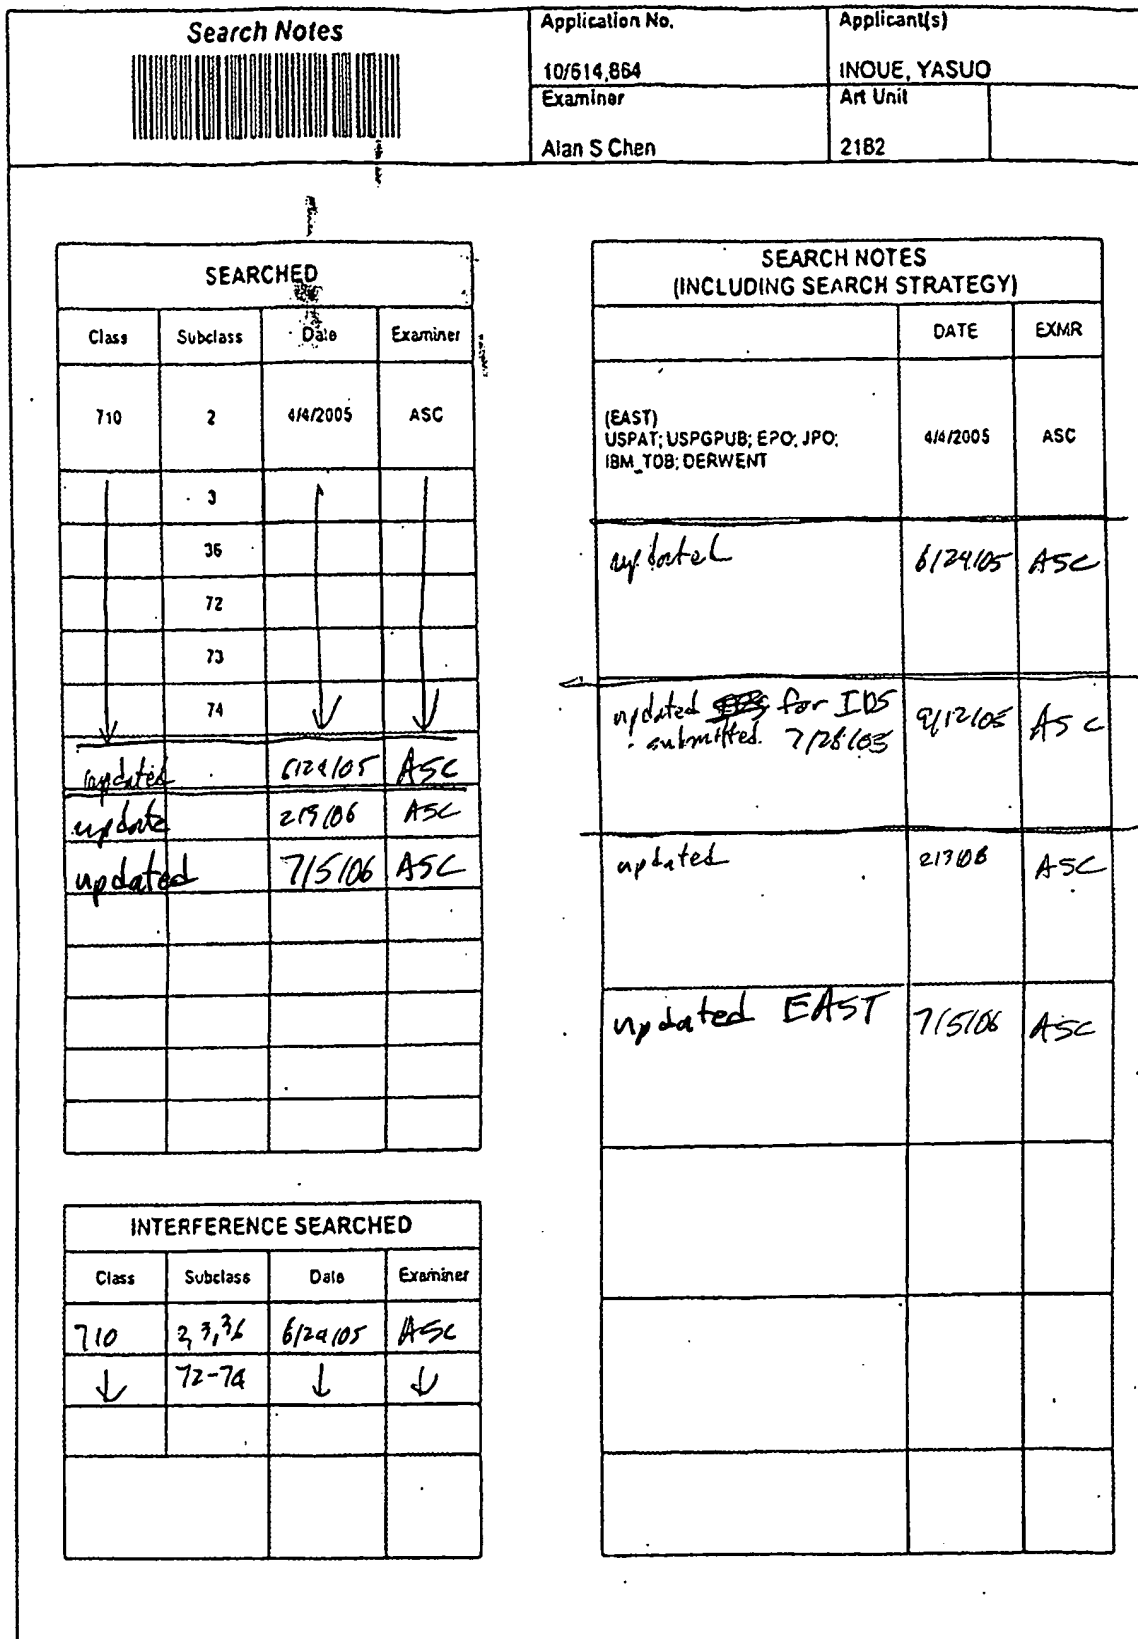 Search Notes
Application No.
10/614,864
Applicant(s)
INOUE, YASUO
Examiner
Alan S Chen
Art Unit
2182
SEARCHED
Class Subclass Date Examiner
710 2 4/4/2005 ASC
3
36
72
73
74
updated 6/29/05 ASC
update ASC
updated 7/5/06 ASC
INTERFERENCE SEARCHED
Class Subclass Date Examiner
710 2,3,36 6/29/05 ASC
72-74
SEARCH NOTES
(INCLUDING SEARCH STRATEGY)
DATE EXMR
(EAST)
USPAT; USPGPUB; EPO; JPO;
IBM_TDB; DERWENT
4/4/2005 ASC
updated 6/29/05 ASC
updated for IDS 9/12/05 ASC
submitted. 7/28/05
updated ASC
updated EAST 7/5/06 ASC